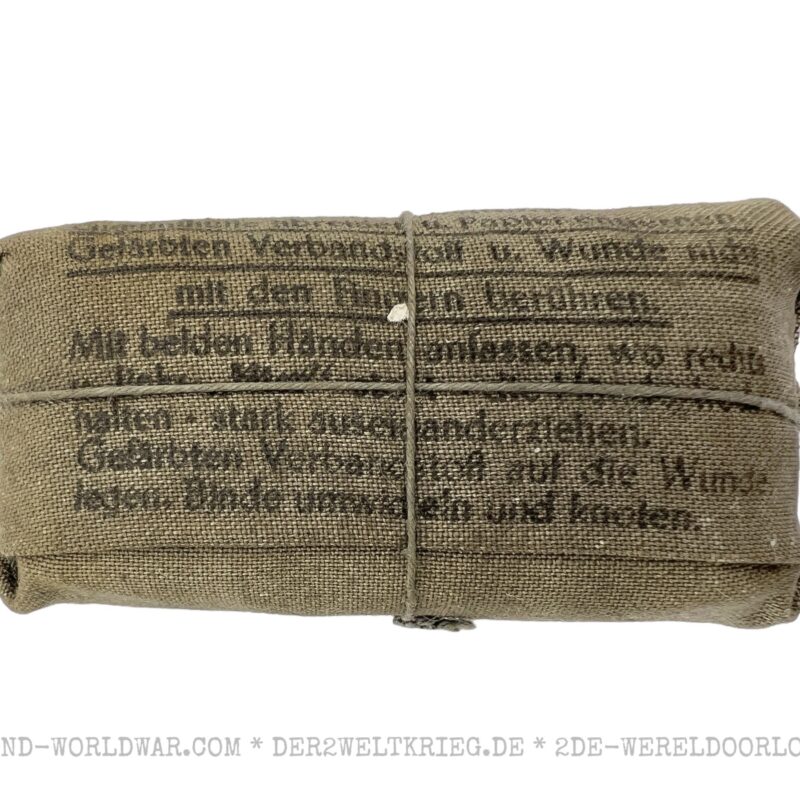 u. Papier entfernen.
Gefärbten Verbandstoff u. Wunde nicht
mit den Fingern berühren.
Mit beiden Händen anfassen, wo rechts
halten - stark auseinanderziehen.
Gefärbten Verbandstoff auf die Wunde
legen. Binde umwickeln und knoten.
ND-WORLDWAR.COM * DER2WELTKRIEG.DE * 2DE-WERELDOORLO